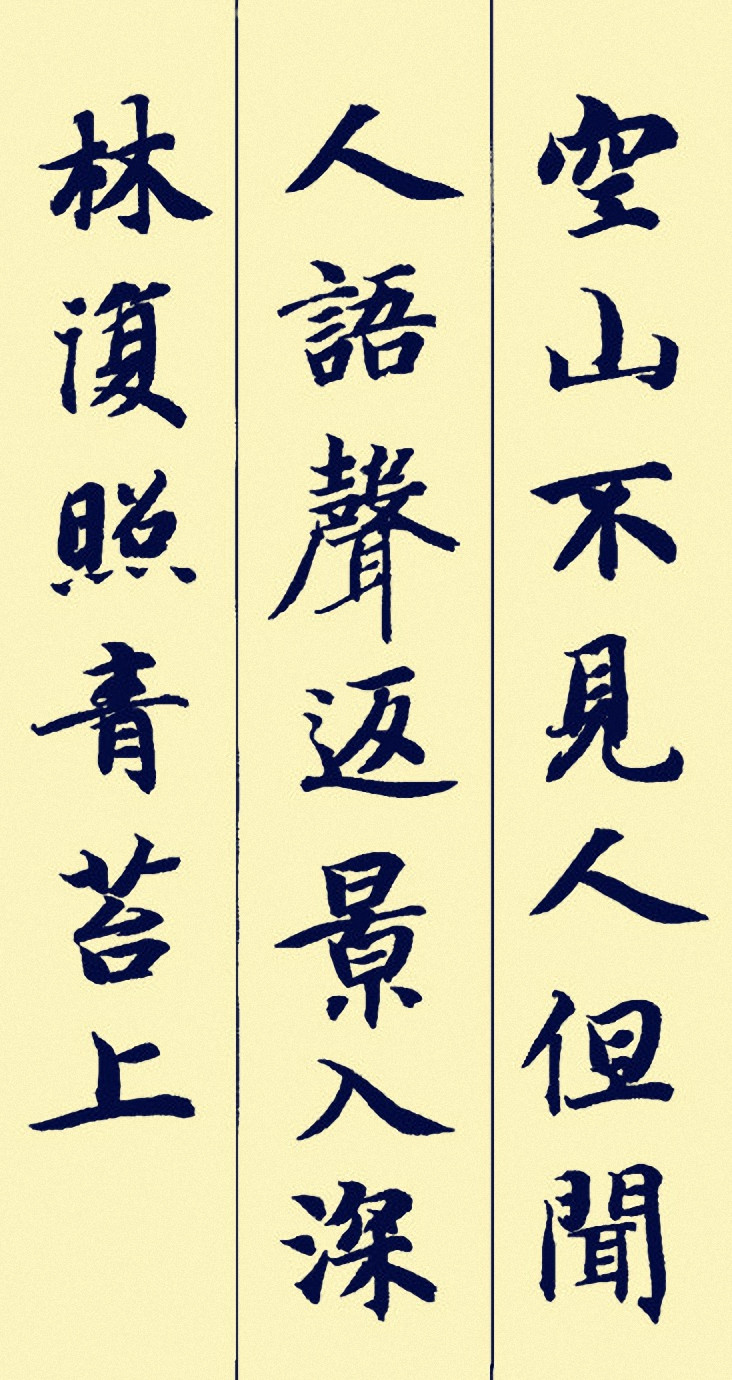 空山不見人但聞
人語聲返景入深
林復照青苔上